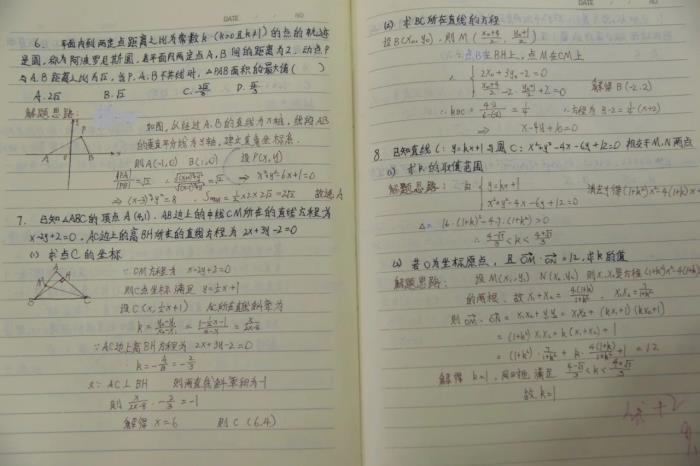 DATE
NO
6. 平面内到两定点距离之比为常数k (k>0且k≠1)的点的轨迹
是圆,称为阿波罗尼斯圆,若平面内两定点A,B间的距离为2,动点P
与A,B距离之比为√2,当P,A,B不共线时,△PAB面积的最大值( )
A. 2√2 B. √2
解题思路:
如图,以经过A,B的直线为x轴,线段AB
的垂直平分线为y轴,建立直角坐标系.
则A(-1,0) B(1,0) 设P(x,y)
|PA|/|PB| = √2 ∴ √((x+1)²+y²)/√((x-1)²+y²) = √2 ⇒ x²+y²-6x+1=0
⇒ (x-3)²+y²=8 ∴ Smax = ½×2×2√2=2√2 故选A
7. 已知△ABC的顶点A(4,1),AB边上的中线CM所在的直线方程为
x-2y+2=0,AC边上的高BH所在的直线方程为 2x+3y-2=0
(1) 求点C的坐标
∵ CM方程为 x-2y+2=0
则C点坐标满足 y=½x+1
设C(x, ½x+1) AC所在直线斜率为
∵ AC边上高BH方程为 2x+3y-2=0
k=-A/B=-2/3
又∵ AC⊥BH 则两直线斜率积为-1
解得 x=6 则C(6,4)
DATE
NO
(2) 求BC所在直线的方程
设B(x₀,y₀),则M((x₀+4)/2, (y₀+1)/2)
∵点B在BH上,点M在CM上
∴ 2x₀+3y₀-2=0
(x₀+4)/2-2·(y₀+1)/2+2=0 解得B(-2,2)
∴ kBC=(4-2)/(6-(-2))=1/4 ∴方程为 y-2=¼(x+2)
⇒ x-4y+10=0
8. 已知直线l: y=kx+1与圆C: x²+y²-4x-6y+12=0 相交于M,N两点
(1) 求k的取值范围
解题思路: 由 y=kx+1
x²+y²-4x-6y+12=0
△=16(1+k)²-4·7·(1+k²)>0
∴ (4-√7)/3<k<(4+√7)/3
(2) 若O为坐标原点,且OM·ON=12,求k的值
解题思路: 设M(x₁,y₁) N(x₂,y₂)
的两根,故x₁+x₂=4(1+k)/(1+k²), x₁x₂=7/(1+k²)
则 OM·ON=x₁x₂+y₁y₂=x₁x₂+(kx₁+1)(kx₂+1)
=(1+k²)x₁x₂+k(x₁+x₂)+1
=(1+k²)·7/(1+k²)+k·4(1+k)/(1+k²)+1=12
解得 k=1,
满足 (4-√7)/3<k<(4+√7)/3
故k=1